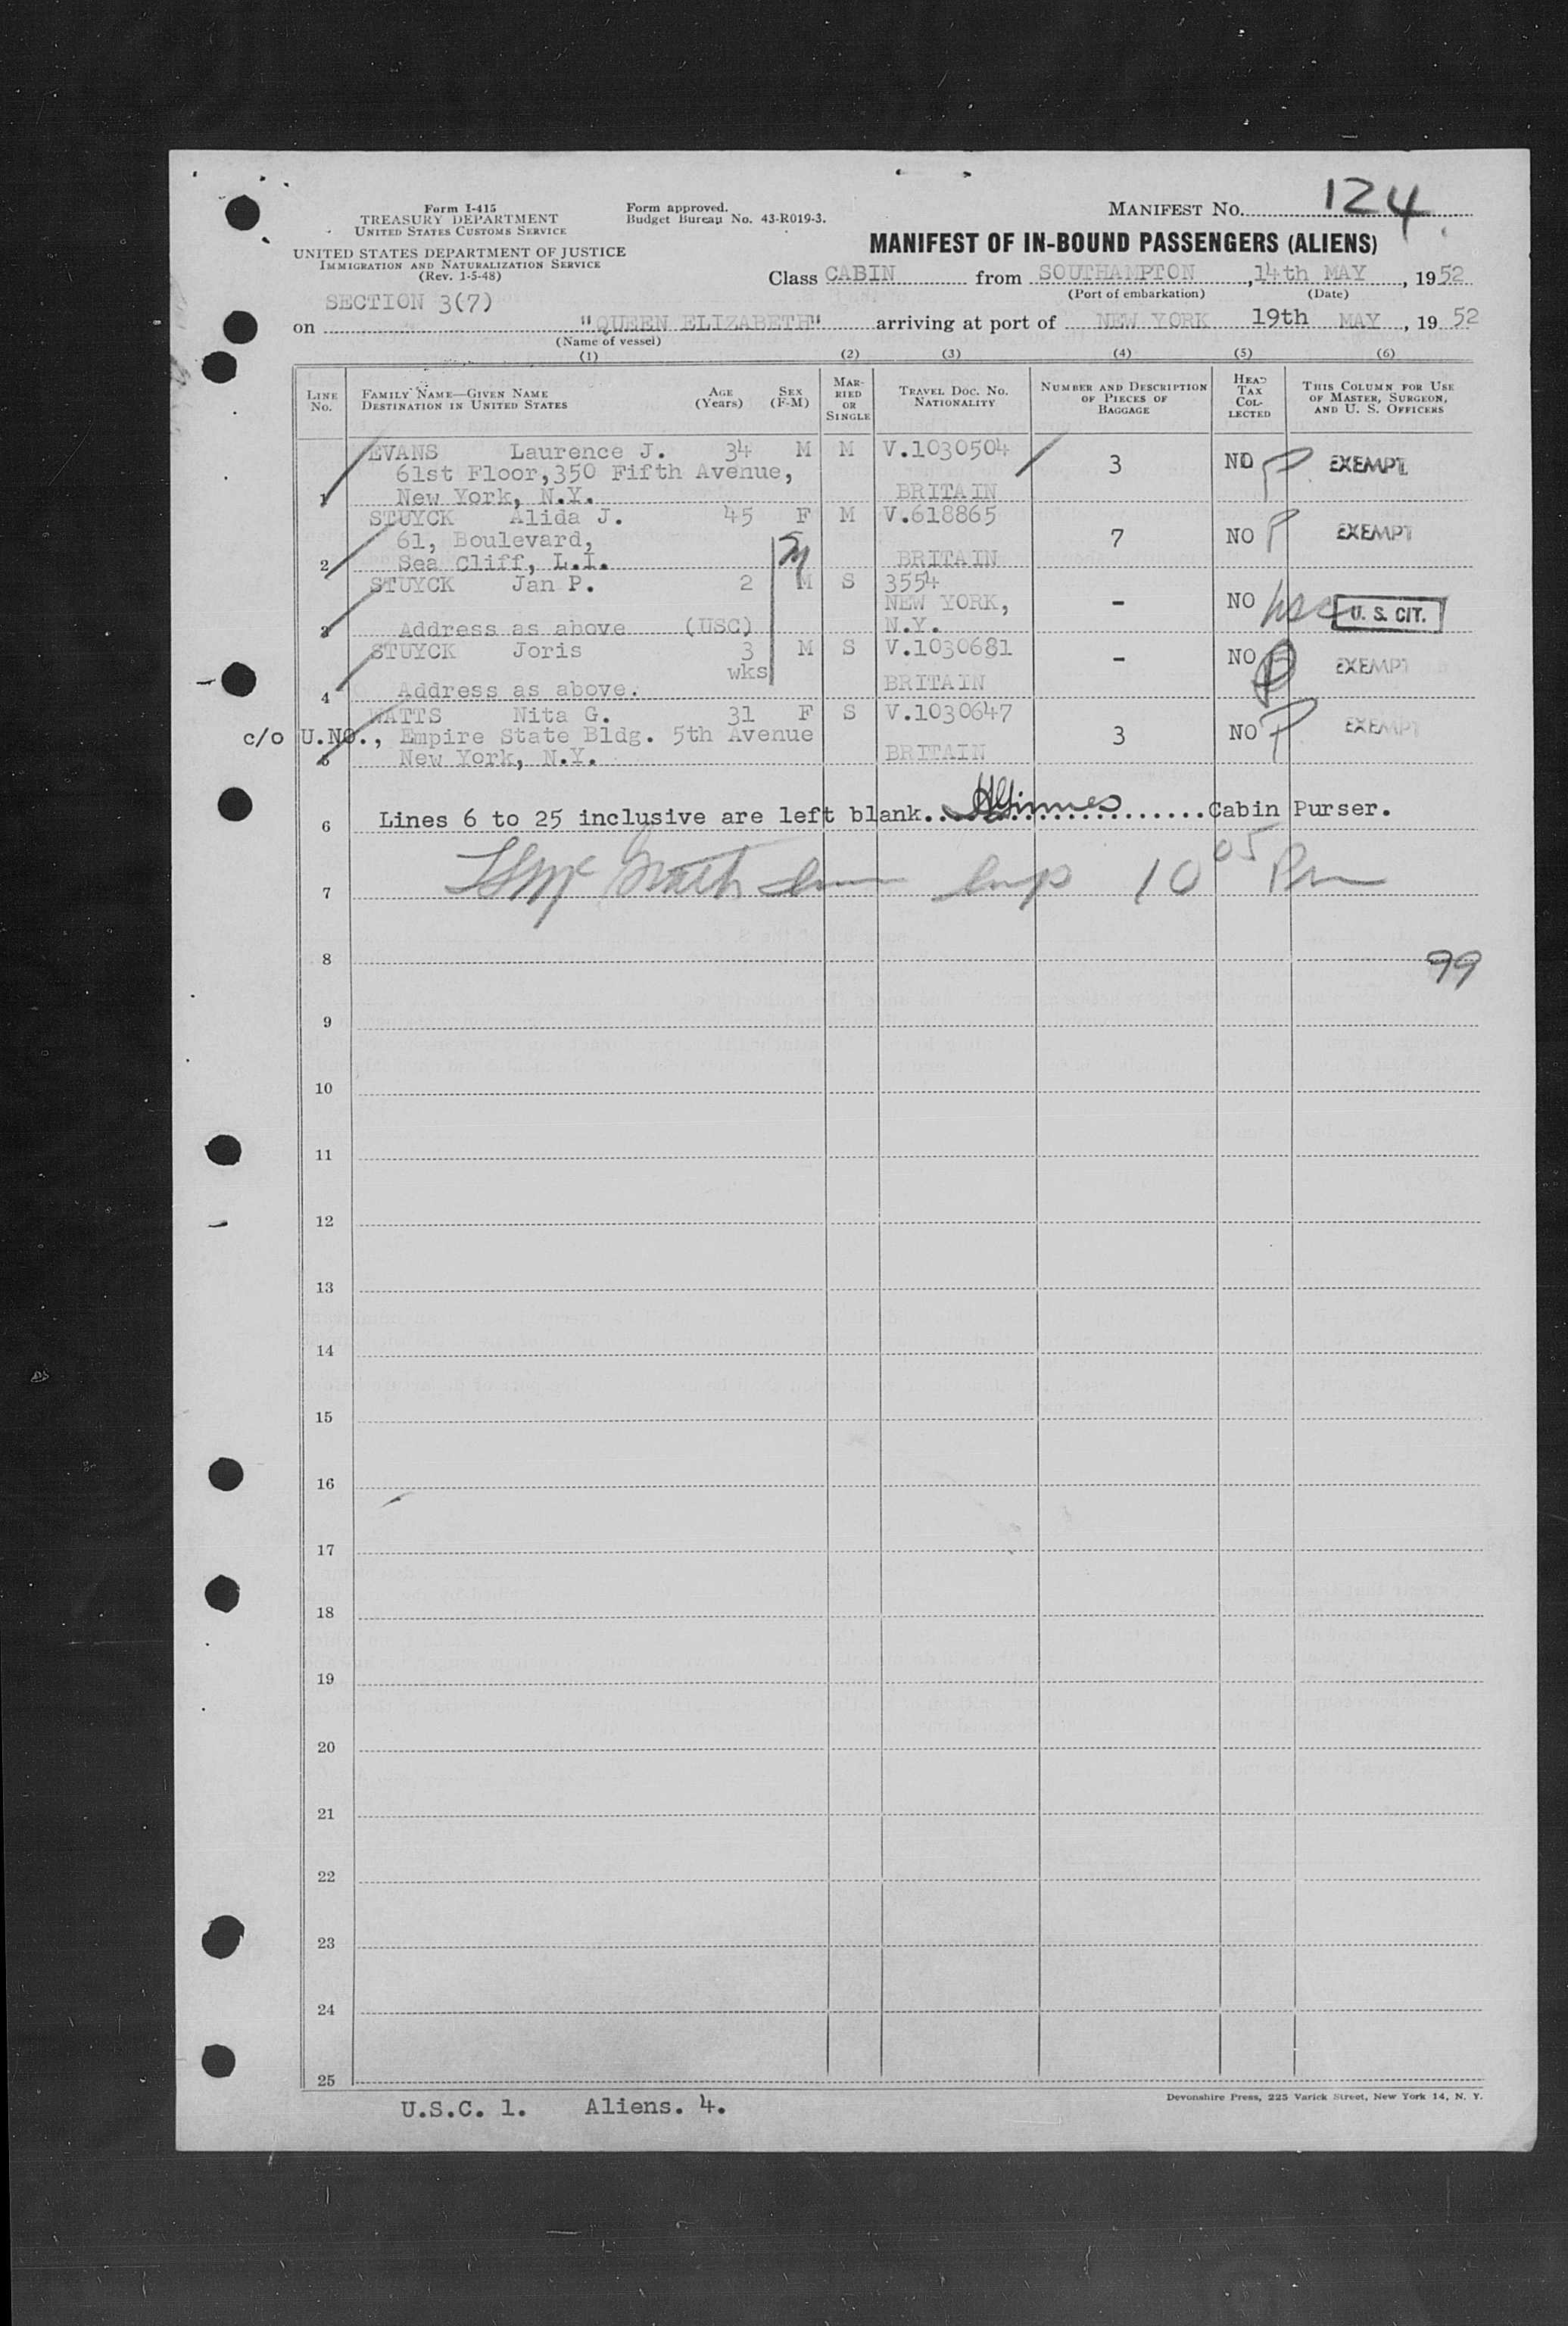 Form I-415
TREASURY DEPARTMENT
UNITED STATES CUSTOMS SERVICE
UNITED STATES DEPARTMENT OF JUSTICE
IMMIGRATION AND NATURALIZATION SERVICE
(Rev. 1-5-48)
Form approved.
Budget Bureau No. 43-R019-3.
MANIFEST NO. 124
MANIFEST OF IN-BOUND PASSENGERS (ALIENS)
Class CABIN from SOUTHAMPTON, 14th MAY, 1952
(Port of embarkation) (Date)
SECTION 3(7)
on "QUEEN ELIZABETH" arriving at port of NEW YORK 19th MAY, 19 52
(Name of vessel)
(1) (2) (3) (4) (5) (6)
LINE NO. FAMILY NAME—GIVEN NAME DESTINATION IN UNITED STATES AGE (Years) SEX (F-M) MARRIED OR SINGLE TRAVEL DOC. NO. NATIONALITY NUMBER AND DESCRIPTION OF PIECES OF BAGGAGE HEAD TAX COLLECTED THIS COLUMN FOR USE OF MASTER, SURGEON, AND U. S. OFFICERS
EVANS Laurence J. 34 M M V.1030504 3 NO EXEMPT
61st Floor,350 Fifth Avenue,
1 New York, N.Y. BRITAIN
STUYCK Alida J. 45 F M V.618865 7 NO EXEMPT
61, Boulevard,
2 Sea Cliff, L.I. BRITAIN
STUYCK Jan P. 2 M S 3554 - NO usc U. S. CIT.
NEW YORK,
3 Address as above (USC) N.Y.
STUYCK Joris 3 M S V.1030681 - NO EXEMPT
wks
4 Address as above. BRITAIN
WATTS Nita G. 31 F S V.1030647 3 NO EXEMPT
c/o U.NO., Empire State Bldg. 5th Avenue
5 New York, N.Y. BRITAIN
6 Lines 6 to 25 inclusive are left blank. Cabin Purser.
7 10 05 Pm
8 99
9
10
11
12
13
14
15
16
17
18
19
20
21
22
23
24
25
U.S.C. 1. Aliens. 4.
Devonshire Press, 225 Varick Street, New York 14, N. Y.